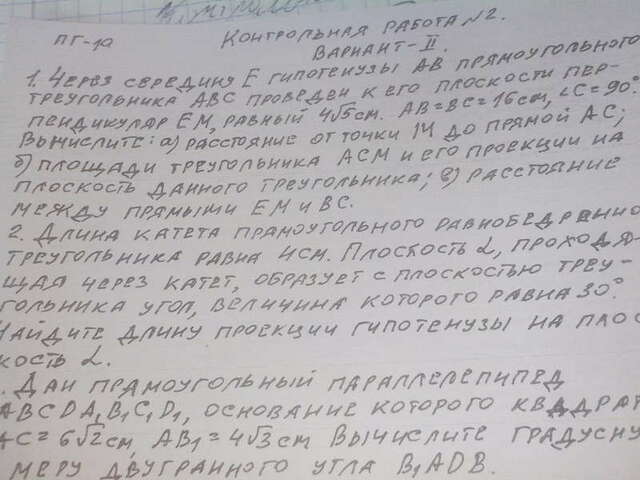 ПГ-10 КОНТРОЛЬНАЯ РАБОТА №2.
ВАРИАНТ-II.
1. ЧЕРЕЗ СЕРЕДИНУ E ГИПОТЕНУЗЫ AB ПРЯМОУГОЛЬНОГО
ТРЕУГОЛЬНИКА ABC ПРОВЕДЕН К ЕГО ПЛОСКОСТИ ПЕР-
ПЕНДИКУЛЯР EM, РАВНЫЙ 4√5см. AB=BC=16см, ∠C=90.
ВЫЧИСЛИТЕ: а) РАССТОЯНИЕ ОТ ТОЧКИ M ДО ПРЯМОЙ AC;
б) ПЛОЩАДИ ТРЕУГОЛЬНИКА ACM И ЕГО ПРОЕКЦИИ НА
ПЛОСКОСТЬ ДАННОГО ТРЕУГОЛЬНИКА; в) РАССТОЯНИЕ
МЕЖДУ ПРЯМЫМИ EM И BC.
2. ДЛИНА КАТЕТА ПРЯМОУГОЛЬНОГО РАВНОБЕДРЕННО
ТРЕУГОЛЬНИКА РАВНА 4см. ПЛОСКОСТЬ α, ПРОХОДЯ-
ЩАЯ ЧЕРЕЗ КАТЕТ, ОБРАЗУЕТ С ПЛОСКОСТЬЮ ТРЕУ-
ГОЛЬНИКА УГОЛ, ВЕЛИЧИНА КОТОРОГО РАВНА 30°.
НАЙДИТЕ ДЛИНУ ПРОЕКЦИИ ГИПОТЕНУЗЫ НА ПЛОС
КОСТЬ α.
. ДАН ПРЯМОУГОЛЬНЫЙ ПАРАЛЛЕЛЕПИПЕД
ABCDA₁B₁C₁D₁, ОСНОВАНИЕ КОТОРОГО КВАДРАТ
AC=6√2см, AB₁=4√3см ВЫЧИСЛИТЕ ГРАДУСНУ
МЕРУ ДВУГРАННОГО УГЛА B₁ADB.